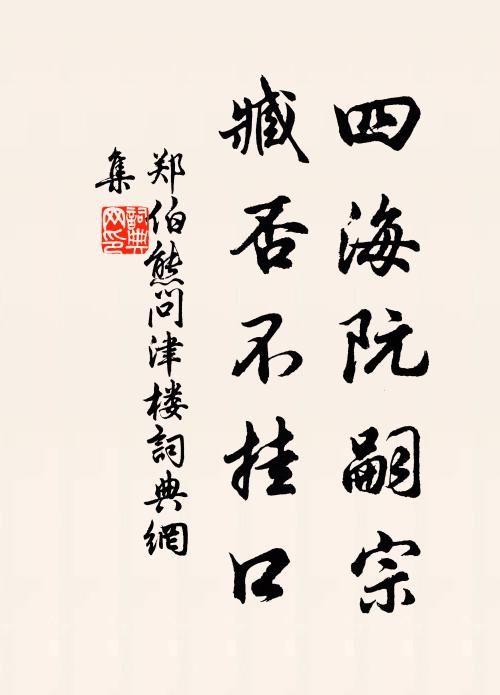 四海阮嗣宗
臧否不挂口
郑伯熊问津楼詞典網
集
詞典网印